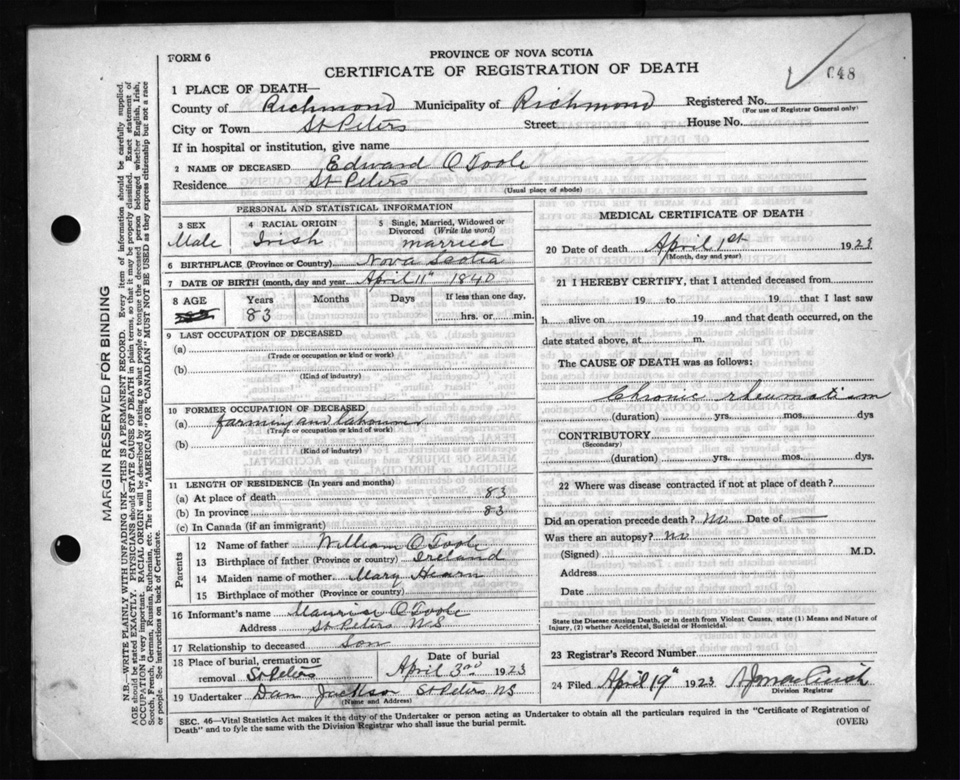 FORM 6
PROVINCE OF NOVA SCOTIA
CERTIFICATE OF REGISTRATION OF DEATH
648
1 PLACE OF DEATH—
County of Richmond Municipality of Richmond Registered No.
(For use of Registrar General only)
City or Town St Peters Street House No.
If in hospital or institution, give name
2 NAME OF DECEASED Edward O'Toole
Residence St Peters
(Usual place of abode)
PERSONAL AND STATISTICAL INFORMATION
3 SEX Male
4 RACIAL ORIGIN Irish
5 Single, Married, Widowed or Divorced (Write the word) married
6 BIRTHPLACE (Province or Country) Nova Scotia
7 DATE OF BIRTH (month, day and year) April 11" 1840
8 AGE Years Months Days If less than one day,
83 hrs. or min.
9 LAST OCCUPATION OF DECEASED
(a)
(Trade or occupation or kind or work)
(b)
(Kind of industry)
10 FORMER OCCUPATION OF DECEASED
(a) farming and Labourer
(Trade or occupation or kind of work)
(b)
(Kind of industry)
11 LENGTH OF RESIDENCE (In years and months)
(a) At place of death 83
(b) In province 83
(c) In Canada (if an immigrant)
Parents
12 Name of father William O Toole
13 Birthplace of father (Province or country) Ireland
14 Maiden name of mother Mary Hearn
15 Birthplace of mother (Province or country)
16 Informant's name Maurise O Toole
Address St Peters N S
17 Relationship to deceased Son
18 Place of burial, cremation or removal St Peters
Date of burial April 3rd 1923
19 Undertaker Dan Jackson St Peters NS
(Name and Address)
MEDICAL CERTIFICATE OF DEATH
20 Date of death April 1st 1923
(Month, day and year)
21 I HEREBY CERTIFY, that I attended deceased from
19 to 19 that I last saw
h alive on 19 and that death occurred, on the
date stated above, at m.
The CAUSE OF DEATH was as follows:
Chronic rheumatism
(duration) yrs. mos. dys
CONTRIBUTORY
(Secondary)
(duration) yrs. mos. dys.
22 Where was disease contracted if not at place of death?
Did an operation precede death? No Date of —
Was there an autopsy? No
(Signed) M.D.
Address
Date
State the Disease causing Death, or in death from Violent Causes, state (1) Means and Nature of
Injury, (2) whether Accidental, Suicidal or Homicidal.
23 Registrar's Record Number
24 Filed April 19" 1923
Division Registrar
SEC. 46—Vital Statistics Act makes it the duty of the Undertaker or person acting as Undertaker to obtain all the particulars required in the "Certificate of Registration of
Death" and to fyle the same with the Division Registrar who shall issue the burial permit.
(OVER)
MARGIN RESERVED FOR BINDING
N.B.—WRITE PLAINLY WITH UNFADING INK—THIS IS A PERMANENT RECORD. Every item of information should be carefully supplied.
AGE should be stated EXACTLY. PHYSICIANS should STATE CAUSE OF DEATH in plain terms, so that it may be properly classified. Exact statement of
OCCUPATION is very important. RACIAL ORIGIN will be described by stating to what people or tongue the deceased person belonged whether English, Irish,
Scotch, French, German, Russian, Ruthenian, etc. The terms "AMERICAN" OR "CANADIAN" MUST NOT BE USED as they express citizenship but not a race
or people. See instructions on back of Certificate.